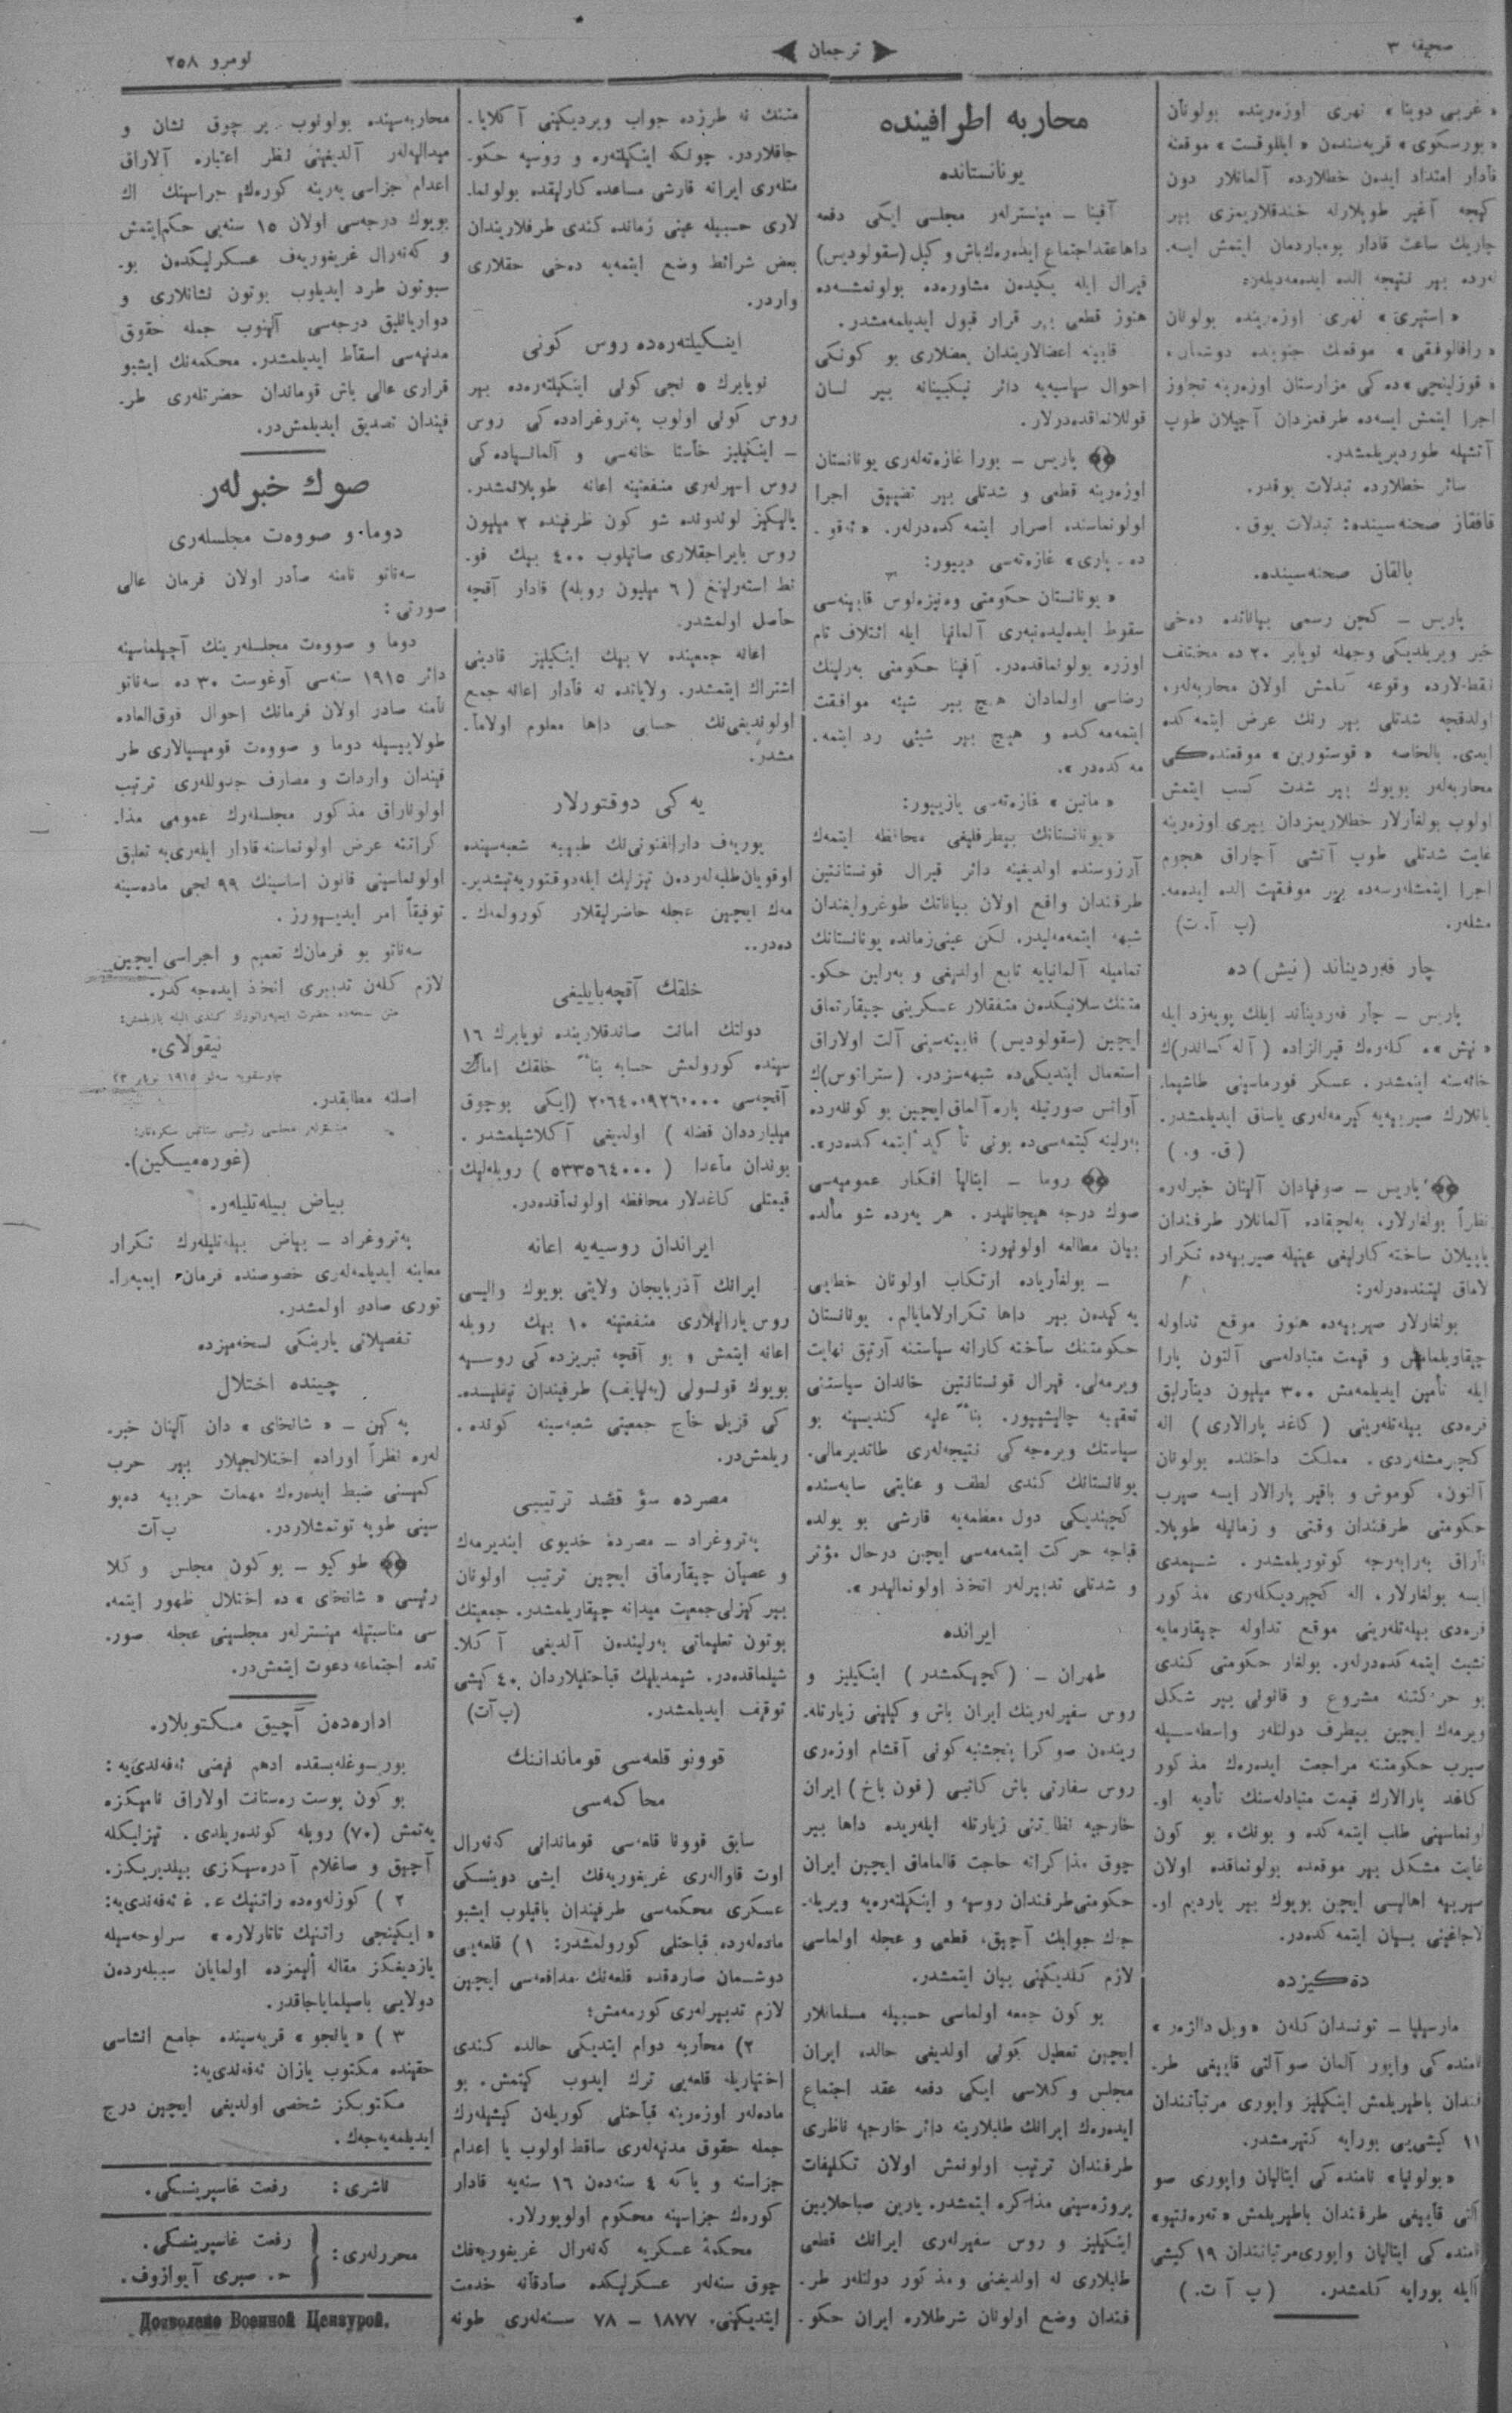 صحیفه ۳
ترجمان
نومرو ۲۵۸
« غربی دوینا » نهری اوزەرینده بولونان
« بورسكوی » قریه‌سندن « ایللوقست » موقعنه
قادار امتداد ایدەن خطلارده آلمانلار دون
كیجه آغیر طوپلارله خندقلاریمزی بیر
چاریك ساعت قادار بومباردمان ایتمش ایسه‌.
لەرده بیر نتیجه الده ایدەمەدیلەر.
« استیری » نهری اوزەرینده بولونان
« رافالوفقی » موقعنك جنوبنده دوشمان،
« قوزلینچی » ده كی مزارستان اوزەرینه تجاوز
اجرا ایتمش ایسەده طرفمزدان آچیلان طوپ
آتشیله طوردیریلمشدر.
سائر خطلارده تبدلات یوقدر.
قافقاز صحنه‌سینده: تبدلات یوق.
بالقان صحنه‌سینده.
پاریس ـ كچن رسمی بیاناتده دەخی
خبر ویریلدیكی وجهله نویابر ۲۰ ده مختلف
نقطه‌لارده وقوعه كلمش اولان محاربه‌لەر،
اولدقچه شدتلی بیر رنك عرض ایتمه كده
ایدی. بالخاصه « قوستورین » موقعنده‌كی
محاربه‌لەر بویوك بیر شدت كسب ایتمش
اولوب بولغارلار خطلاریمزدان بیری اوزەرینه
غایت شدتلی طوپ آتشی آچاراق هجوم
اجرا ایتمشلەرسەده بیر موفقیت الده ایدەمه‌.
مشلەر. (پ آ. ت)
چار فەردیناند (نیش) ده
پاریس ـ چار فەردیناند ایلك بویەزد ایله
« نیش » ه كلەرەك قیرالزاده (آله كساندر) ك
خانه‌سنه اینمشدر. عسكر فورماسینی طاشیما.
یانلارك صیربیه‌یه كیرمه‌لەری یاساق ایدیلمشدر.
(ق. و.)
پاریس ـ صوفیادان آلینان خبرلەره
نظراً بولغارلار، یەلچقاده آلمانلار طرفندان
یاپیلان ساخته كارلیغی عینیله صیربیه‌ده تكرار
لاماق نیتنده‌درلەر:
بولغارلار صیربیه‌ده هنوز موقع تداوله
چیقاریلمامش و قیمت متبادله‌سی آلتون پارا
ایله تأمین ایدیلمه‌مش ۳۰۰ میلیون دینارلیق
قرەدی بیله‌تلەرینی (كاغد پارالاری) اله
كچیرمشلەردی. مملكت داخلنده بولونان
آلتون، كوموش و باقیر پارالار ایسه صیرب
حكومتی طرفندان وقتی و زمانیله طوپلا.
ناراق بەرابەرجه كوتوریلمشدر. شیمدی
ایسه بولغارلار، اله كچیردیكلەری مذكور
قرەدی بیله‌تلەرینی موقع تداوله چیقارمایه
تشبث ایتمه كده‌درلەر. بولغار حكومتی كندی
بو حركتنه مشروع و قانونی بیر شكل
ویرمەك ایچین بیطرف دولتلەر واسطه‌سیله
صیرب حكومتنه مراجعت ایدەرەك مذكور
كاغد پارالارك قیمت متبادله‌سنك تأدیه او.
لونماسینی طلب ایتمه كده و بونك، بو كون
غایت مشكل بیر موقعده بولونماقده اولان
صیربیه اهالیسی ایچین بویوك بیر یاردیم او.
لاجاغینی بیان ایتمه كده‌در.
دڭیزده
مارسیلیا ـ تونسدان كلەن « ویل دالژەر »
نامنده كی واپور آلمان صو آلتی قاییغی طر.
فندان باطیریلمش اینكیلیز واپوری مرتباتندان
۱۱ كیشی‌یی بورایه كتیرمشدر.
« بولونیا » نامنده كی ایتالیان واپوری صو
آلتی قاییغی طرفندان باطیریلمش «
نامنده كی ایتالیان واپوری مرتباتندان ۱۹ كیشی
ایله بورایه كلمشدر. (پ آ ت.)
محاربه اطرافینده
یونانستانده
آفینا ـ مینسترلەر مجلسی ایكی دفعه
داها عقد اجتماع ایدەرەك باش و كیل (سقولودیس)
قیرال ایله یكیدەن مشاوره‌ده بولونمشسه‌ده
هنوز قطعی بیر قرار قبول ایدیلمه‌مشدر.
قابینه اعضالاریندان بعضلاری بو كونكی
احوال سیاسیه‌یه دائر نیكبینانه بیر لسان
قوللانماقده‌درلار.
پاریس ـ بورا غازەته‌لەری یونانستان
اوزەرینه قطعی و شدتلی بیر تضییق اجرا
اولونماسنده اصرار ایتمه كده‌درلەر. « ئەقو.
دە. پاری » غازەته‌سی دییور:
« یونانستان حكومتی وەنیزەلوس قابینه‌سی
سقوط ایدەلیدەنبەری آلمانیا ایله ائتلاف تام
اوزره بولونماقده‌در. آفینا حكومتی بەرلینك
رضاسی اولمادان هیچ بیر شیئه موافقت
ایتمه‌مه كده و هیچ بیر شیئی رد ایتمه‌.
مه كده‌در ».
« ماتین » غازەته‌سی یازیییور:
« یونانستانك بیطرفلیغی محافظه ایتمەك
آرزوسنده اولدیغینه دائر قیرال قونستانتین
طرفندان واقع اولان بیاناتك طوغرولیغندان
شبهه ایتمه‌مه‌لیدر. لكن عینی زمانده یونانستانك
تمامیله آلمانیایه تابع اولدیغی و بەرلین حكو.
متنك سلانیكدەن متفقلار عسكرینی چیقارتماق
ایچین (سقولودیس) قابینه‌سینی آلت اولاراق
استعمال ایتدیكی‌ده شبهه‌سزدر. (سترانوس) ك
آوانس صورتیله پاره آلماق ایچین بو كونلەرده
بەرلینه كیتمه‌سی‌ده بونی تأكید ایتمه كده‌در ».
روما ـ ایتالیا افكار عمومیه‌سی
صوك درجه هیجانلیدر. هر یەرده شو مألده
بیان مطالعه اولونیور:
ـ بولغاریاده ارتكاب اولونان خطایی
یه كیدەن بیر داها تكرارلامایالم. یونانستان
حكومتنك ساخته كارانه سیاستنه آرتیق نهایت
ویرمه‌لی. قیرال قونستانتین خاندان سیاستنی
تعقیبه چالیشییور. بناءً علیه كندیسینه بو
سیاستك ویره‌جه كی نتیجه‌لەری طاتدیرمالی.
یونانستانك كندی لطف و عنایتی سایه‌سنده
كچیندیكی دول معظمه‌یه قارشی بو یولده
قباجه حركت ایتمه‌مه‌سی ایچین درحال مؤثر
و شدتلی تدبیرلەر اتخاذ اولونمالیدر ».
ایرانده
طهران ـ (كچیكمشدر) اینكیلیز و
روس سفیرلەرینك ایران باش و كیلینی زیارتله.
ریندەن صو كرا پنجشنبه كونی آقشام اوزەری
روس سفارتی باش كاتبی (فون باخ) ایران
خارجیه نظارتنی زیارتله ایلەریده داها بیر
چوق مذاكراته حاجت قالماماق ایچین ایران
حكومتی طرفندان روسیه و اینكیلتەره‌یه ویریله.
جەك جوابك آچیق، قطعی و عجله اولماسی
لازم كلدیكینی بیان ایتمشدر.
بو كون جمعه اولماسی حسبیله مسلمانلار
ایچین تعطیل كونی اولدیغی حالده ایران
مجلس وكلاسی ایكی دفعه عقد اجتماع
ایدەرەك ایرانك طلبلارینه دائر خارجیه ناظری
طرفندان ترتیب اولونمش اولان تكلیفات
پروژه‌سینی مذاكره ایتمشدر. یارین صباحلایین
اینكیلیز و روس سفیرلەری ایرانك قطعی
طلبلاری نه اولدیغنی و مذكور دولتلەر طر.
فندان وضع اولونان شرطلاره ایران حكو.
متنك نه طرزده جواب ویردیكینی آكلایا.
جاقلاردر. چونكه اینكیلتەره و روسیه حكو.
متلەری ایرانه قارشی مساعده كارلیقده بولونما.
لاری حسبیله عینی زمانده كندی طرفلاریندان
بعض شرائط وضع ایتمه‌یه دەخی حقلاری
واردر.
اینكیلتەره‌ده روس كونی
نویابرك ۵ نجی كونی اینكیلتەره‌ده بیر
روس كونی اولوب پەتروغرادده كی روس
ـ اینكیلیز خاستا خانه‌سی و آلمانیاده كی
روس اسیرلەری منفعتینه اعانه طوپلانمشدر.
یالیكز لوندونده شو كون ظرفینده ۲ میلیون
روس بایراجقلاری صاتیلوب ۴۰۰ بیك فو.
نط استەرلینغ (۶ میلیون روبله) قادار آقچه
حاصل اولمشدر.
اعانه جمعینده ۷ بیك اینكیلیز قادینی
اشتراك ایتمشدر. ولایاتده نه قادار اعانه جمع
اولوندیغی‌نك حسابی داها معلوم اولاما.
مشدر.
یه كی دوقتورلار
یوریەف دارالفنونی‌نك طبیه شعبه‌سینده
اوقویان طلبه‌لەردەن تیزلیك ایله دوقتور یەتیشدیر.
مەك ایچین عجله حاضرلیقلار كورولمەك.
ده‌در..
خلقك آقچه‌بایلیغی
دولتك امانت صاندقلارینده نویابرك ۱۶
سینده كورولمش حسابه بناءً خلقك امانت
آقچه‌سی ۲۰۶۴۰۹۲۶۰۰۰۰ (ایكی بوچوق
میلیارددان فضله) اولدیغی آكلاشیلمشدر.
بوندان ماعدا (۵۳۳۵۶۴۰۰۰) روبله‌لیك
قیمتلی كاغدلار محافظه اولونماقده‌در.
ایراندان روسیه‌یه اعانه
ایرانك آذربایجان ولایتی بویوك والیسی
روس یارالیلاری منفعتینه ۱۰ بیك روبله
اعانه ایتمش و بو آقچه تبریزده كی روسیه
بویوك قونسولی (بەلیایف) طرفیندان تیفلیسده.
كی قزیل خاچ جمعیتی شعبه‌سینه كونده.
ریلمش‌در.
مصرده سؤ قصد ترتیبی
پەتروغراد ـ مصرده خدیوی ایندیرمەك
و عصیان چیقارماق ایچین ترتیب اولونان
بیر كیزلی جمعیت میدانه چیقاریلمشدر. جمعیتك
بوتون تعلیماتی بەرلیندەن آلدیغی آكلا.
شیلماقده‌در. شیمدیلیك قباحتلیلاردان ۴۰ كیشی
توقیف ایدیلمشدر. (پ آت)
قوونو قلعه‌سی قومانداننك
محاكمه‌سی
سابق قوونا قلعه‌سی قوماندانی كەنەرال
اوت قاوالەری غریغوریەفك ایشی دوینسكی
عسكری محكمه‌سی طرفیندان باقیلوب ایشبو
ماده‌لەرده قباحتلی كورولمشدر: ۱) قلعه‌یی
دوشمان صاردقده قلعه‌نك مدافعه‌سی ایچین
لازم تدبیرلەری كورمه‌مش؛
۲) محاربه دوام ایتدیكی حالده كندی
اختیاریله قلعه‌یی ترك ایدوب كیتمش. بو
ماده‌لەر اوزەرینه قباحتلی كوریلەن كیشیلەرك
جمله حقوق مدنیه‌لەری ساقط اولوب یا اعدام
جزاسنه و یا كه ۴ سنه‌دەن ۱۶ سنه‌یه قادار
كورەك جزاسینه محكوم اولویورلار.
محكمۀ عسكریه كەنەرال غریغوریەفك
چوق سنه‌لەر عسكرلیكده صادقانه خدمت
ایتدیكینی، ۱۸۷۷ ـ ۷۸ سنه‌لەری طونه
محاربه‌سینده بولونوب بیر چوق نشان و
میدالیه‌لەر آلدیغینی نظر اعتباره آلاراق
اعدام جزاسی یەرینه كورەك جزاسینك اك
بویوك درجه‌سی اولان ۱۵ سنه‌یی حكم ایتمش
و كەنەرال غریغوریەف عسكرلیكدەن بو.
سبوتون طرد ایدیلوب بوتون نشانلاری و
دواریانلیق درجه‌سی آلینوب جمله حقوق
مدنیه‌سی اسقاط ایدیلمشدر. محكمه‌نك ایشبو
قراری عالی باش قوماندان حضرتلەری طر.
فیندان تصدیق ایدیلمش‌در.
صوك خبرلەر
دوما و صووەت مجلسلەری
سەناتو نامنه صادر اولان فرمان عالی
صورتی:
دوما و صووەت مجلسلەرینك آچیلماسینه
دائر ۱۹۱۵ سنه‌سی آوغوست ۳۰ ده سەناتو
نامنه صادر اولان فرمانك احوال فوق‌العاده
طولاییسیله دوما و صووەت قومیسیالاری طر
فیندان واردات و مصارف جدوللەری ترتیب
اولوناراق مذكور مجلسلەرك عمومی مذا.
كراتنه عرض اولونماسنه قادار ایلەری‌یه تعلیق
اولونماسینی قانون اساسینك ۹۹ نجی ماده‌سینه
توفیقاً امر ایدییورز.
سەناتو بو فرمان‌ك تعمیم و اجراسی ایچین
لازم كلەن تدبیری اتخاذ ایده‌جه كدر.
متن نسخه‌ده حضرت ایمپەراتورك كندی الیله یازیلمش:
نیقولای.
چارسقویه سەلو ۱۹۱۵ نویابر ۲۳
اصلنه مطابقدر.
مینسترلەر مجلسی رئیسی ستاتس سكرەتار:
(غورەمیكین).
بیاض بیله‌تلیلەر.
پەتروغراد ـ بیاض بیله‌تلیلەرك تكرار
معاینه ایدیلمه‌لەری خصوصنده فرمان ایمپەرا.
توری صادر اولمشدر.
تفصیلاتی یارینكی نسخه‌میزده
چینده اختلال
پەكین ـ « شانخای » دان آلینان خبر.
لەره نظراً اوراده اختلالجیلار بیر حرب
كمیسنی ضبط ایدەرەك مهمات حربیه دەپو
سینی طوپه توتمشلاردر. پ آت
طوكیو ـ بو كون مجلس وكلا
رئیسی « شانخای » ده اختلال ظهور ایتمه.
سی مناسبتیله مینسترلەر مجلسینی عجله صور.
تده اجتماعه دعوت ایتمش‌در.
اداره‌دەن آچیق مكتوبلار.
بوروسوغلەبسقده ادهم فیضی ئەفەندی‌یه:
بو كون پوست رەستانت اولاراق نامیكزه
یەتمش (۷۰) روبله كوندەریلدی. تیزلیكله
آچیق و صاغلام آدرەسیكزی بیلدیریكز.
۲) كوزلەوەده راتنیك ع. غ ئەفەندی‌یه:
« ایكینجی راتنیك تاتارلاره » سرلوحه‌سیله
یازدیغكز مقاله ألیمزده اولمایان سببلەردەن
دولایی باصیلمایاجاقدر.
۳) « یانجو » قریه‌سینده جامع انشاسی
حقینده مكتوب یازان ئەفەندی‌یه:
مكتوبكز شخصی اولدیغی ایچین درج
ایدیلمه‌یه‌جەك.
ناشری: رفعت غاسپرینسكی.
محررلەری: رفعت غاسپرینسكی.
ح. صبری آیوازوف.
Дозволено Военной Цензурой.